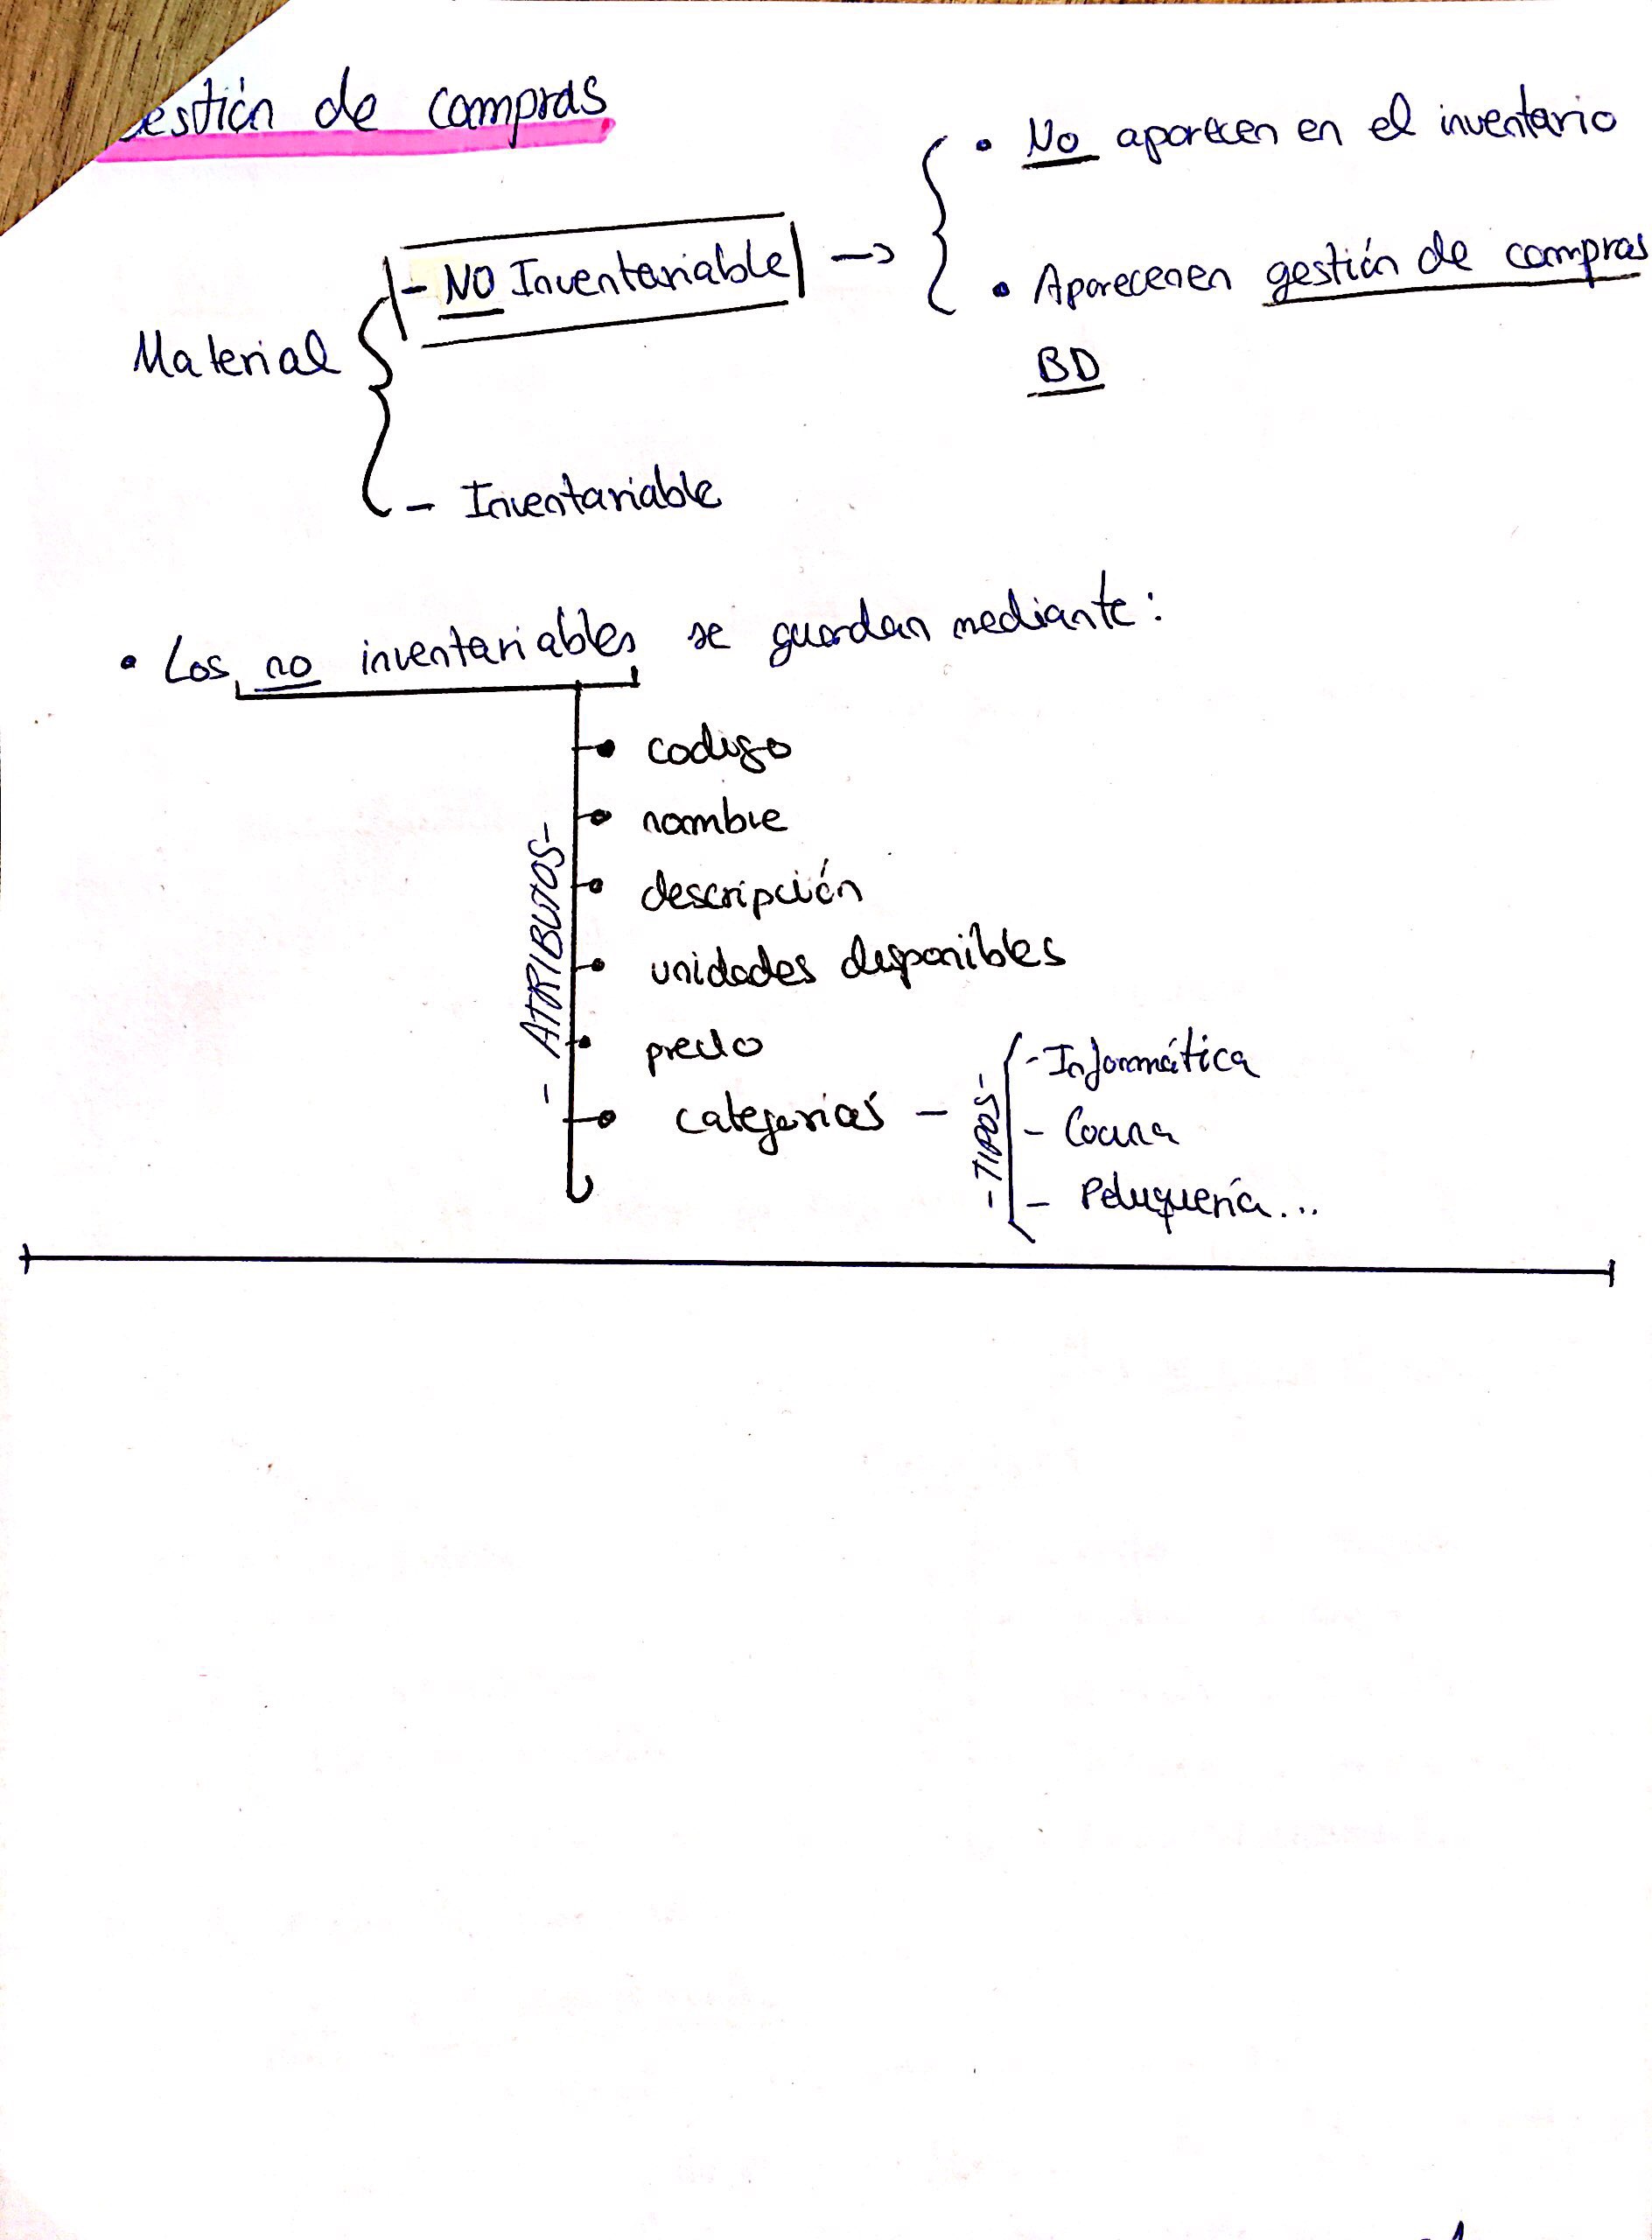 Gestión de compras
• No aparecen en el inventario
- NO Inventariable →
• Aparecen en gestión de compras
BD
Material
- Inventariable
• Los no inventariables se guardan mediante:
- ATRIBUTOS -
codigo
nombre
descripción
unidades disponibles
precio
categorías -
- TIPOS -
- Informática
- Cocina
- Peluquería...